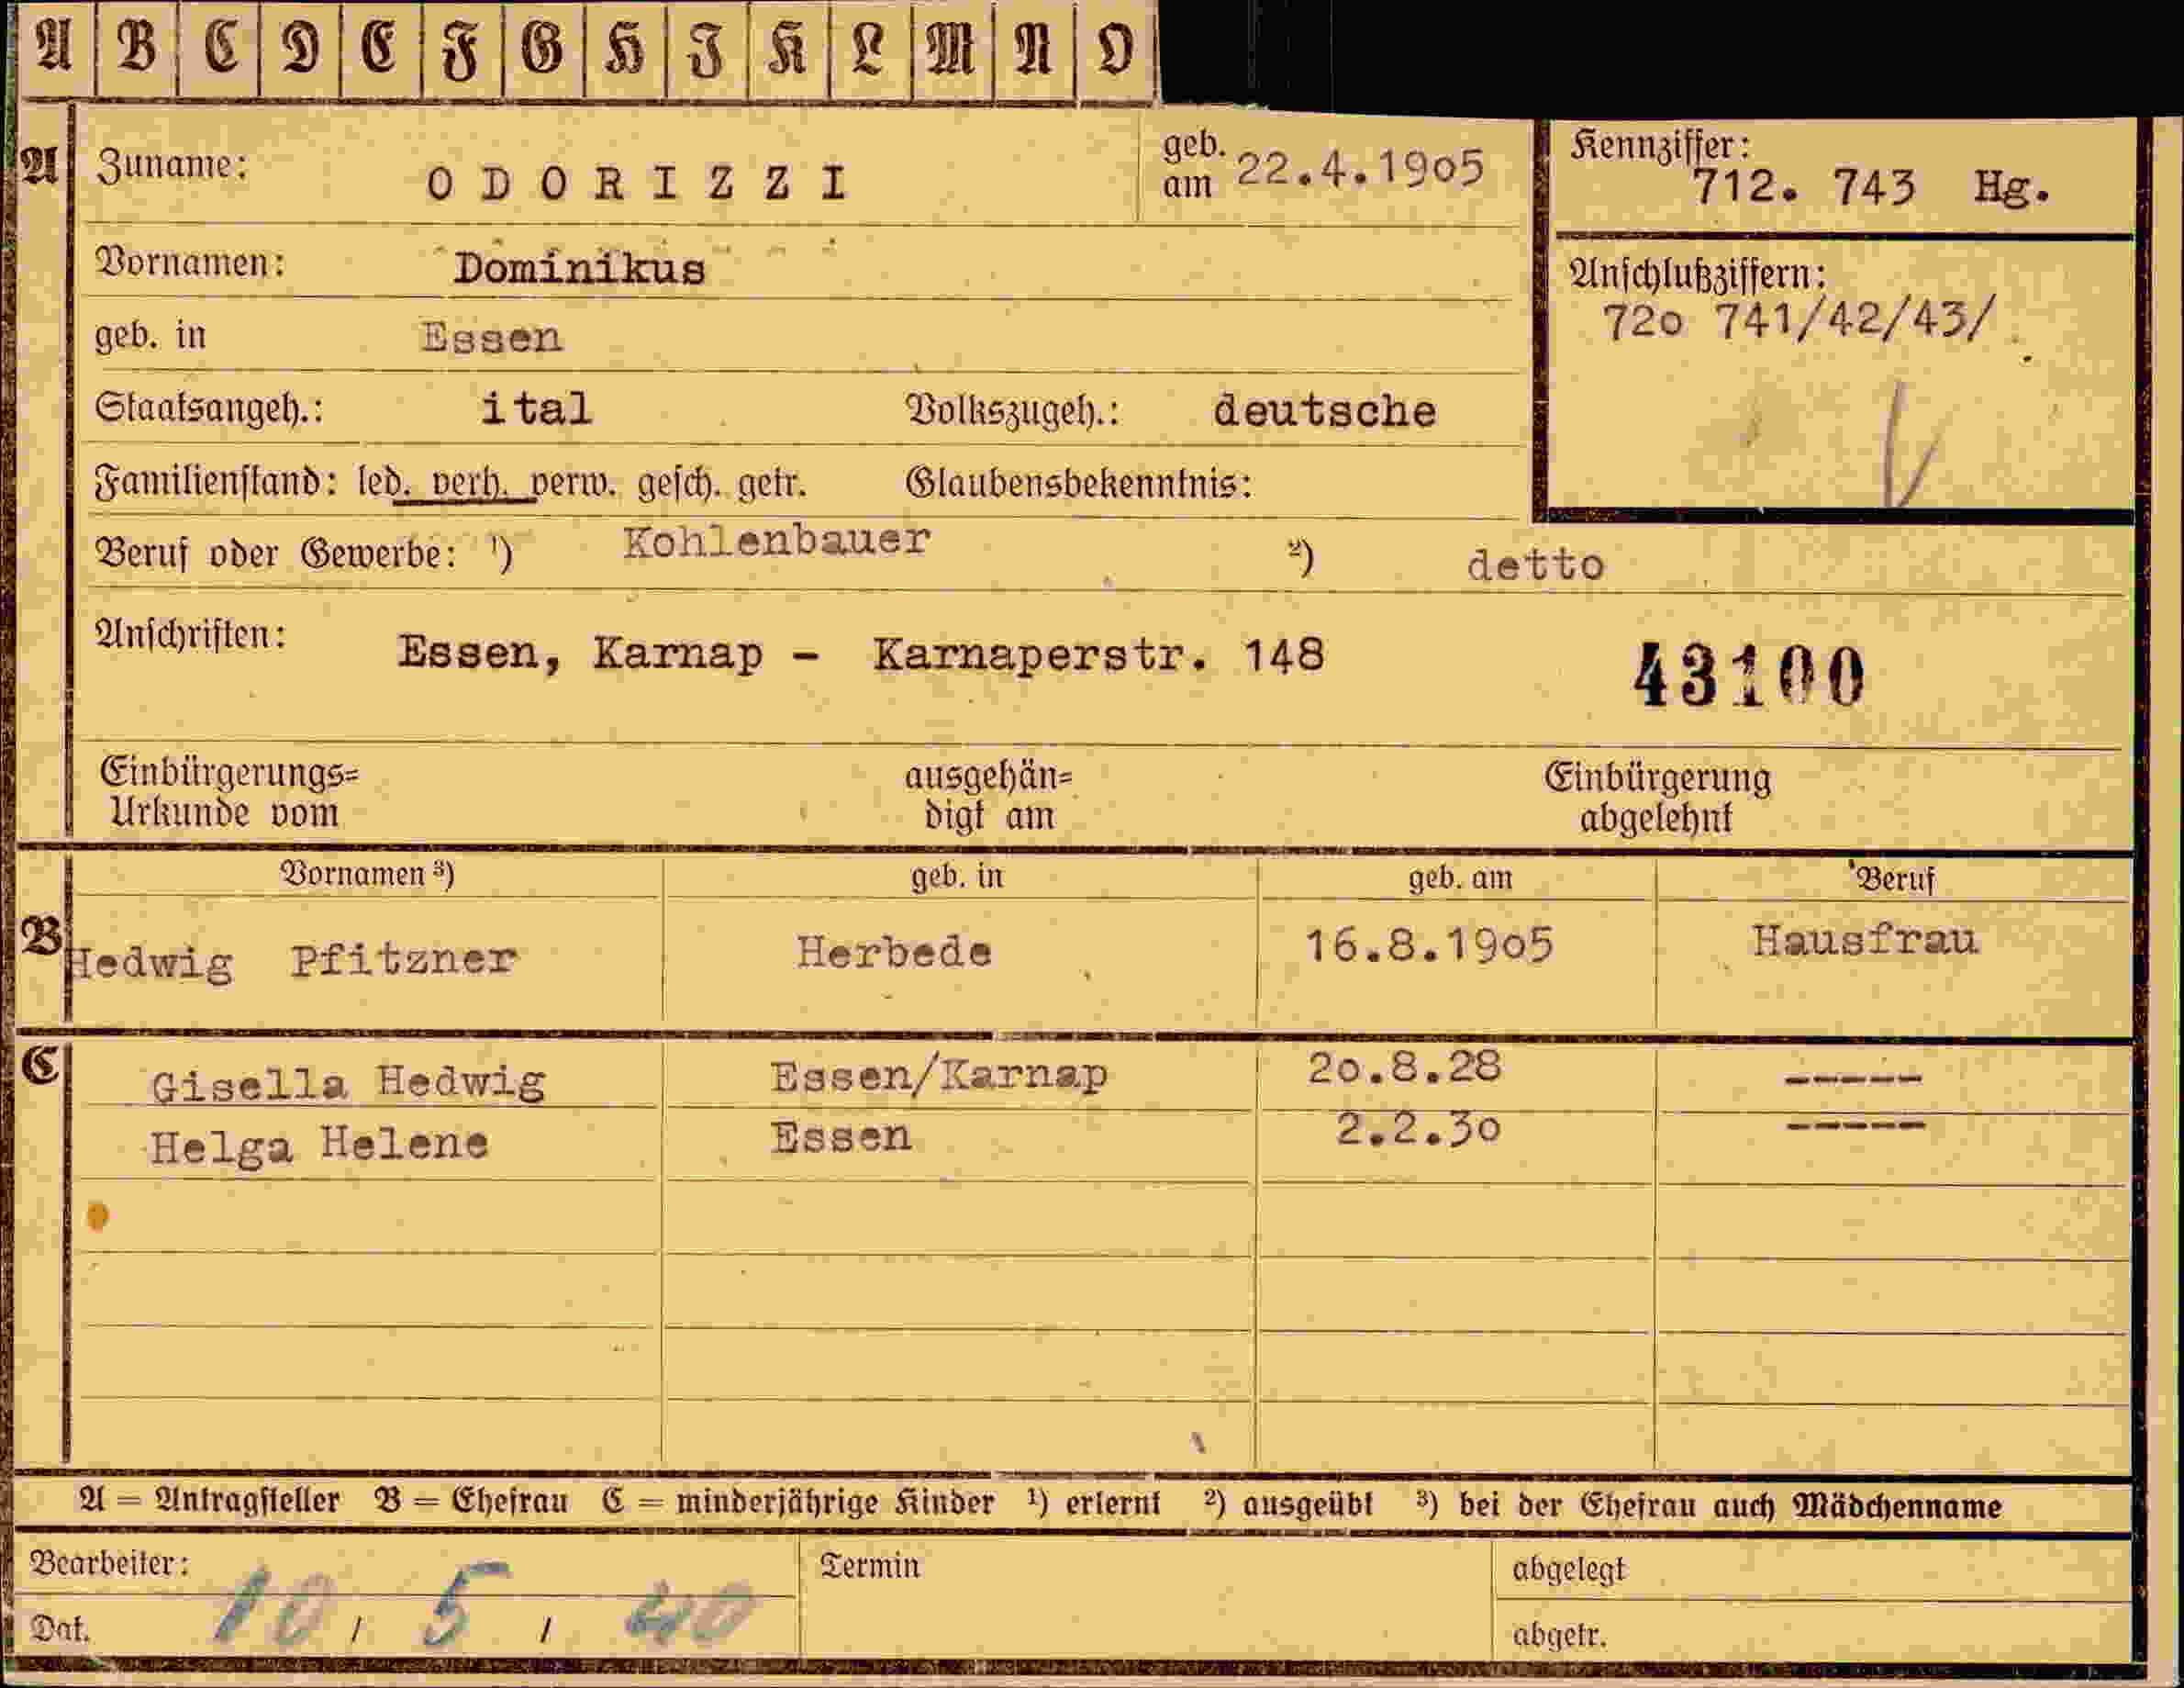 A B C D E F G H I K L M N O
A Zuname: ODORIZZI geb. am 22.4.1905 Kennziffer: 712. 743 Hg.
Vornamen: Dominikus Anschlußziffern:
geb. in Essen 720 741/42/43/
Staatsangeh.: ital Volkszugeh.: deutsche
Familienstand: led. verh. verw. gesch. getr. Glaubensbekenntnis:
Beruf oder Gewerbe: ¹) Kohlenbauer ²) detto
Anschriften: Essen, Karnap - Karnaperstr. 148 43100
Einbürgerungs= ausgehän= Einbürgerung
Urkunde vom digt am abgelehnt
Vornamen ³) geb. in geb. am Beruf
B Hedwig Pfitzner Herbede 16.8.1905 Hausfrau
C Gisella Hedwig Essen/Karnap 20.8.28 -----
Helga Helene Essen 2.2.30 -----
A = Antragsteller B = Ehefrau C = minderjährige Kinder ¹) erlernt ²) ausgeübt ³) bei der Ehefrau auch Mädchenname
Bearbeiter: Termin abgelegt
Dat. 10 / 5 / 40 abgetr.